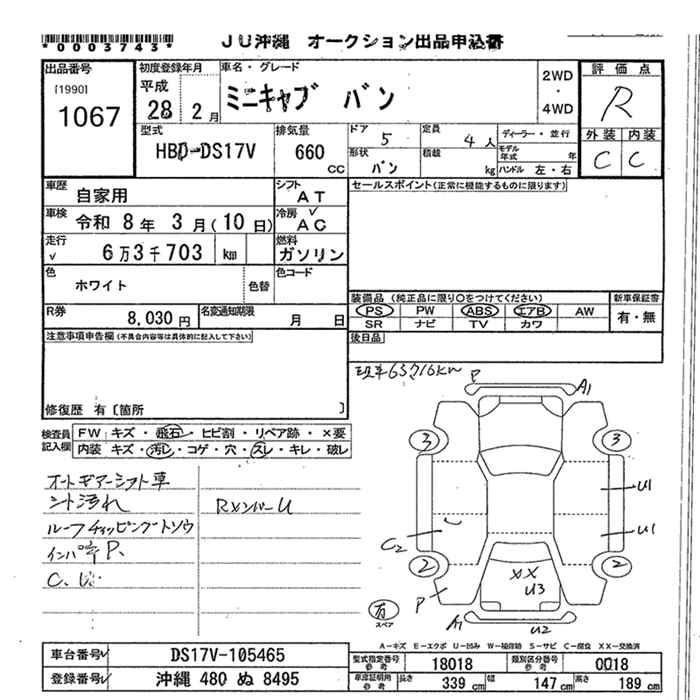 *0003743*
JU沖縄 オークション出品申込書
出品番号
[1990]
1067
初度登録年月
平成
28年 2月
車名・グレード
ミニキャブ バン
2WD
・
4WD
評価点
R
外装 内装
C C
型式
HBD-DS17V
排気量
660
CC
ドア 5
定員 4人
ディーラー・並行
モデル年式 年
形状 バン
積載 kg
ハンドル 左・右
車歴
自家用
シフト
AT
車検
令和 8年 3月(10日)
冷房 ✓
AC
走行
✓ 6万3千703 km
燃料
ガソリン
色
ホワイト
色替
色コード
R券
8,030円
名変通知期限
月 日
セールスポイント(正常に機能するものに限ります)
装備品 (純正品に限り○をつけてください)
PS PW ABS エアB AW
SR ナビ TV カワ
新車保証書
有・無
後日品
注意事項申告欄(不具合内容等は具体的に記入して下さい)
修復歴 有〔箇所 〕
現車63716km
検査員記入欄
FW キズ・飛石・ヒビ割・リペア跡・×要
内装 キズ・汚レ・コゲ・穴・スレ・キレ・破レ
オートギアーシフト車
シート汚れ
ルーフチッピングトソウ
RメンバーU
P.
C.
P
A1
3
3
U1
U1
C2
2
2
XX
U3
P
A1
U2
有
スペア
A-キズ E-エクボ U-凹み W-補修跡 S-サビ C-腐食 XX-交換済
車台番号✓ DS17V-105465
登録番号✓ 沖縄 480 ぬ 8495
型式指定番号
参考
18018
類別区分番号
参考
0018
車庫証明用
参考
長さ 339 cm
幅 147 cm
高さ 189 cm